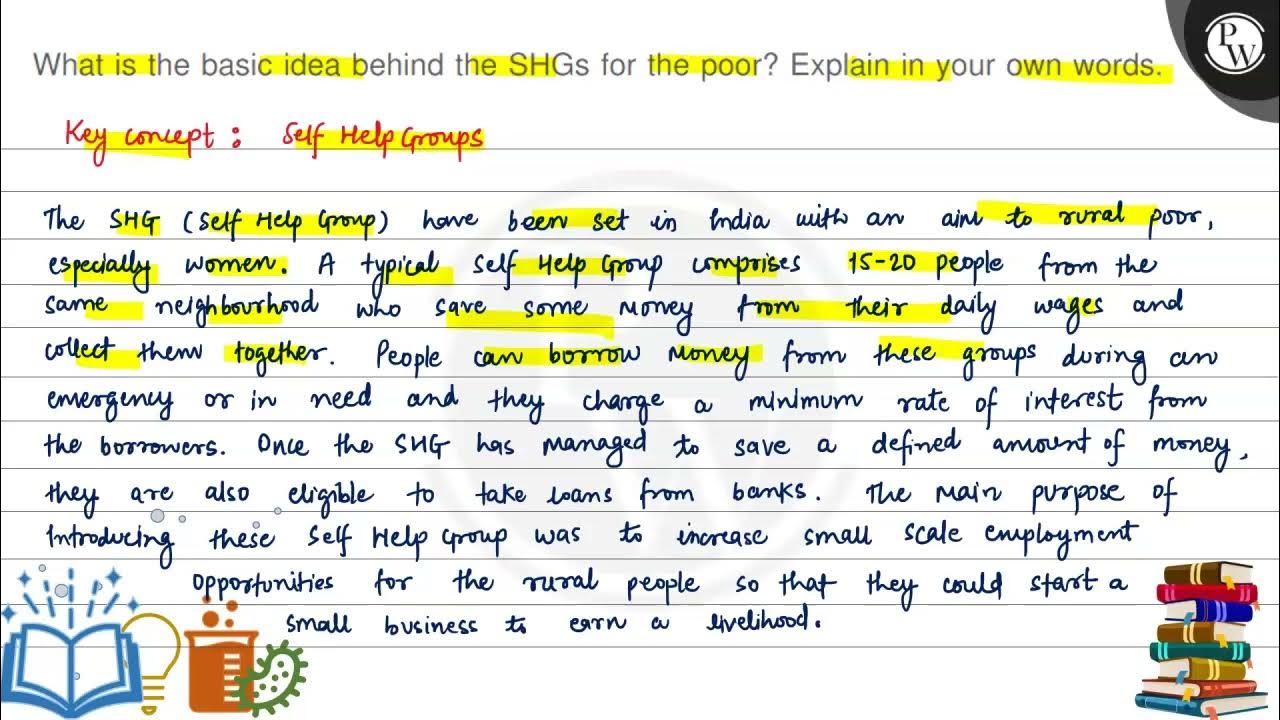 What is the basic idea behind the SHGs for the poor? Explain in your own words.
PW
Key concept : Self Help Groups
The SHG (Self Help Group) have been set in India with an aim to rural poor,
especially women. A typical Self Help Group comprises 15-20 people from the
same neighbourhood who save some money from their daily wages and
collect them together. People can borrow money from these groups during an
emergency or in need and they charge a minimum rate of interest from
the borrowers. Once the SHG has managed to save a defined amount of money,
they are also eligible to take loans from banks. The main purpose of
Introducing these Self Help Group was to increase small scale employment
opportunities for the rural people so that they could start a
small business to earn a livelihood.